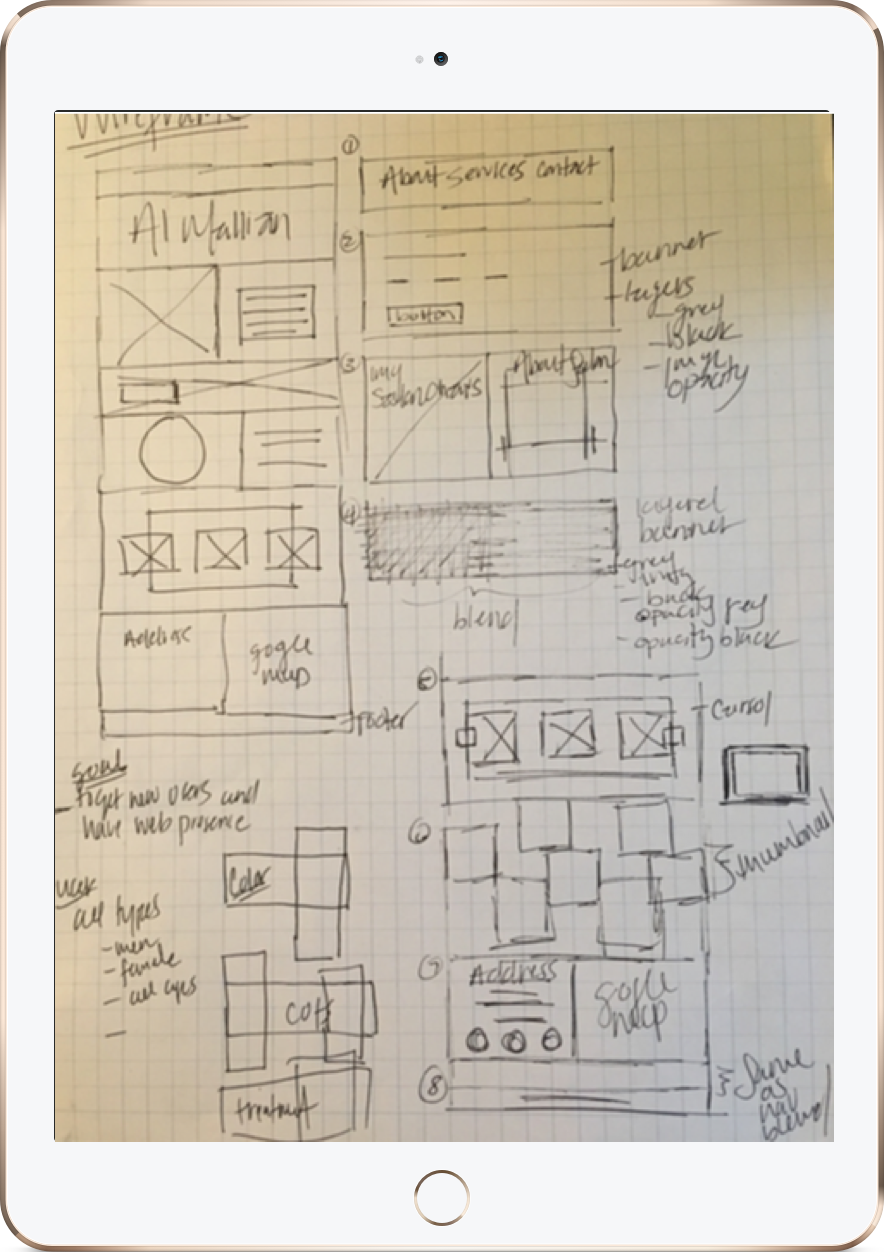 Wireframe
Al Mallian
Address
google
map
footer
goal
to get new users and
have web presence
user
all types
- men
- female
- all ages
Color
Cuts
treatment
①
About Services Contact
②
button
banner
layers
- grey
- Black
- img
opacity
③
my
About Salon
④
layered
bannner
grey
- opacity black
blend
Cursol
⑥
thumbnail
⑦
Address
gogle
map
⑧
Same
as
nav
blend